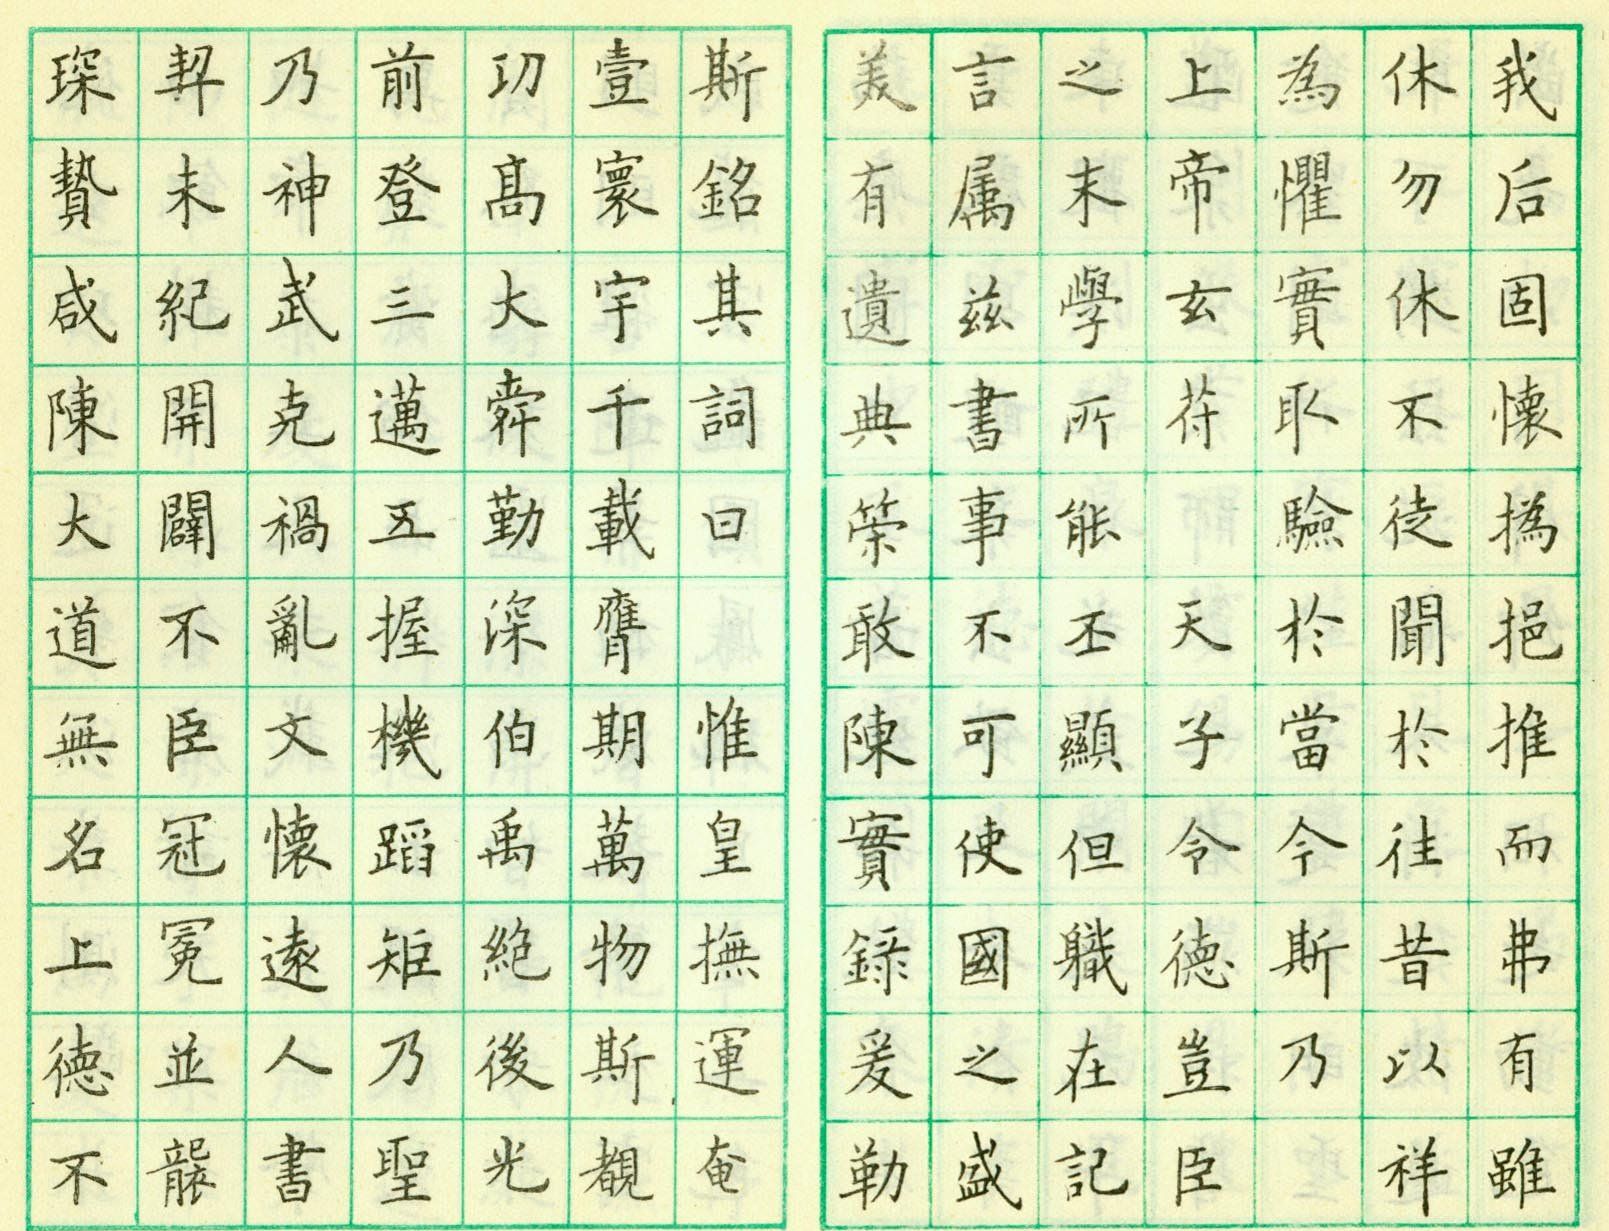 我后固懷撝挹推而弗有雖
休勿休不徒聞於往昔以祥
為懼實取驗於當今斯乃
上帝玄符天子令德豈臣
之末學所能丕顯但職在記
言属茲書事不可使國之盛
美有遺典策敢陳實錄爰勒
斯銘其詞曰惟皇撫運奄
壹寰宇千載膺期萬物斯覩
功高大舜勤深伯禹絕後光
前登三邁五握機蹈矩乃聖
乃神武克禍亂文懷遠人書
契未紀開闢不臣冠冕並襲
琛贄咸陳大道無名上德不